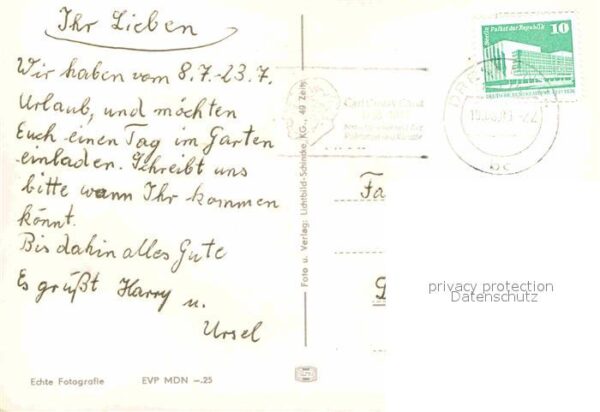 Ihr Lieben
Wir haben vom 8.7.-23.7.
Urlaub, und möchten
Euch einen Tag im Garten
einladen. Schreibt uns
bitte wann Ihr kommen
könnt.
Bis dahin alles Gute
Es grüßt Harry u.
Ursel
Echte Fotografie
EVP MDN –.25
Foto u. Verlag: Lichtbild-Schincke, KG., 49 Zeitz
Berlin Palast der Republik
10
DRES
Fa
privacy protection
Datenschutz